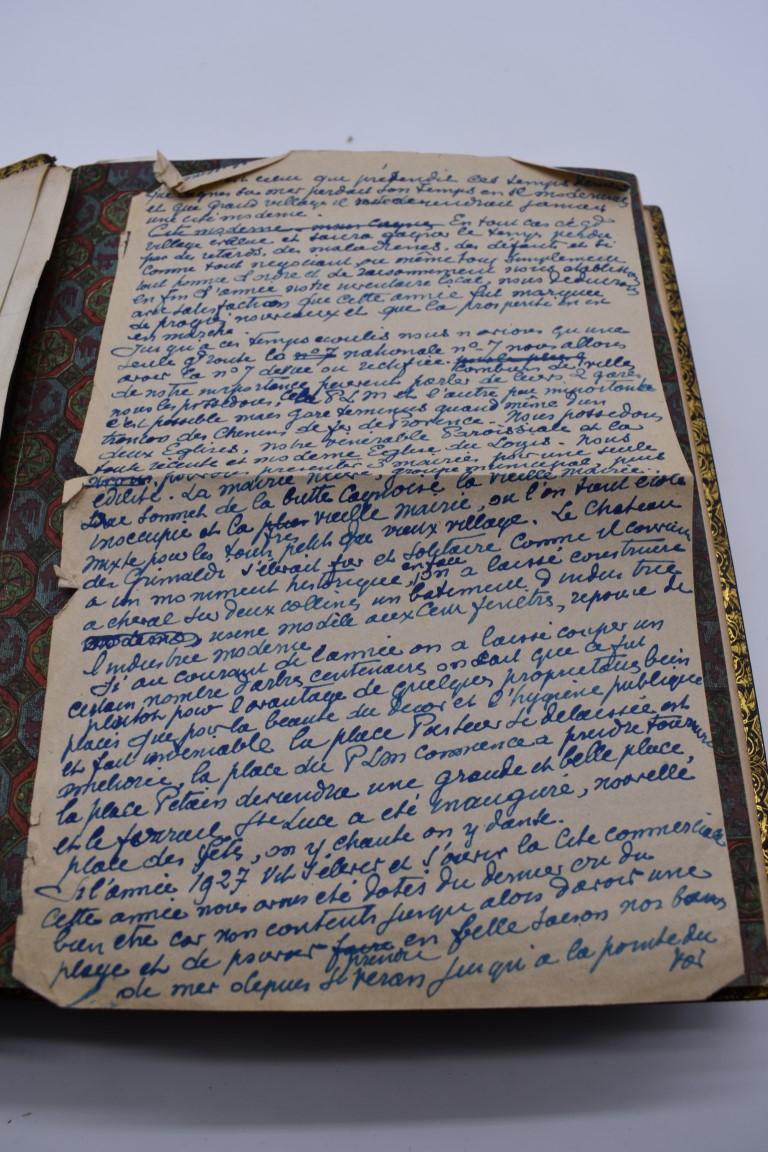 ceux que prétendit ces temps
que Cagnes sur mer perdait son temps en se modernis
et que grand village il ne deviendrait jamais
une cité moderne.
Cité moderne En tout cas ce gd
village évolue et saura gagner le temps perdu
par des retards, des maladresses, des défauts et si
comme tout négociant ou même tout simplement
tout homme d'ordre et de raisonnement nous établissons
en fin d'année notre inventaire local, nous déduirons
avec satisfaction que cette année fut marquée
de progrès nouveaux et que la prospérité en est
en marche.
Jusqu'à ces temps écoulés nous n'avions qu'une
seule gde route la n° 7 nationale n° 7 nous allons
avoir la n° 7 déviée ou rectifiée. Combien de villes
de notre importance peuvent parler de leurs 2 gares
nous les possédons, celle P.L.M et l'autre peu importante
c'est possible mais gare terminus quand même d'un
tronçon des Chemins de fer de Provence. Nous possédons
deux Eglises, notre vénérable Paroissiale et la
toute récente et moderne Eglise du Logis. Nous
pouvons présenter 3 mairies pour une seule
édilité. La mairie neuve, groupe municipal, puis
au sommet de la butte Cagnoise la vieille mairie
inoccupée et la plus vieille mairie, ou l'on tient école
mixte pour les tous petits du vieux village. Le Chateau
des Grimaldi s'élevait fier et solitaire comme il convient
a un monument historique, en face on a laissé construire
a cheval sur deux collines un batiment d'industrie
moderne, usine modèle aux Cent fenêtres, réponse de
l'industrie moderne.
Si au courant de l'année on a laissé couper un
certain nombre d'arbres centenaires on sait que ce fut
plutôt pour l'avantage de quelques propriétaires bien
placés que pour la beauté du décor et l'hygiène publique
et fait indéniable la place Pasteur si délaissée est
améliorée, la place du P L M commence a prendre tournure
la place Pétain deviendra une grande et belle place,
et le Ste Luce a été inauguré, nouvelle
place des fêtes, on y chante on y danse.
Si l'année 1927 vit s'élever et s'ouvrir la Cité commerciale
cette année nous avons été dotés du dernier cri du
bien être car non contents jusqu'alors d'avoir une
plage et de pouvoir faire prendre en belle saison nos bains
de mer depuis jusqu'a la pointe du
Var